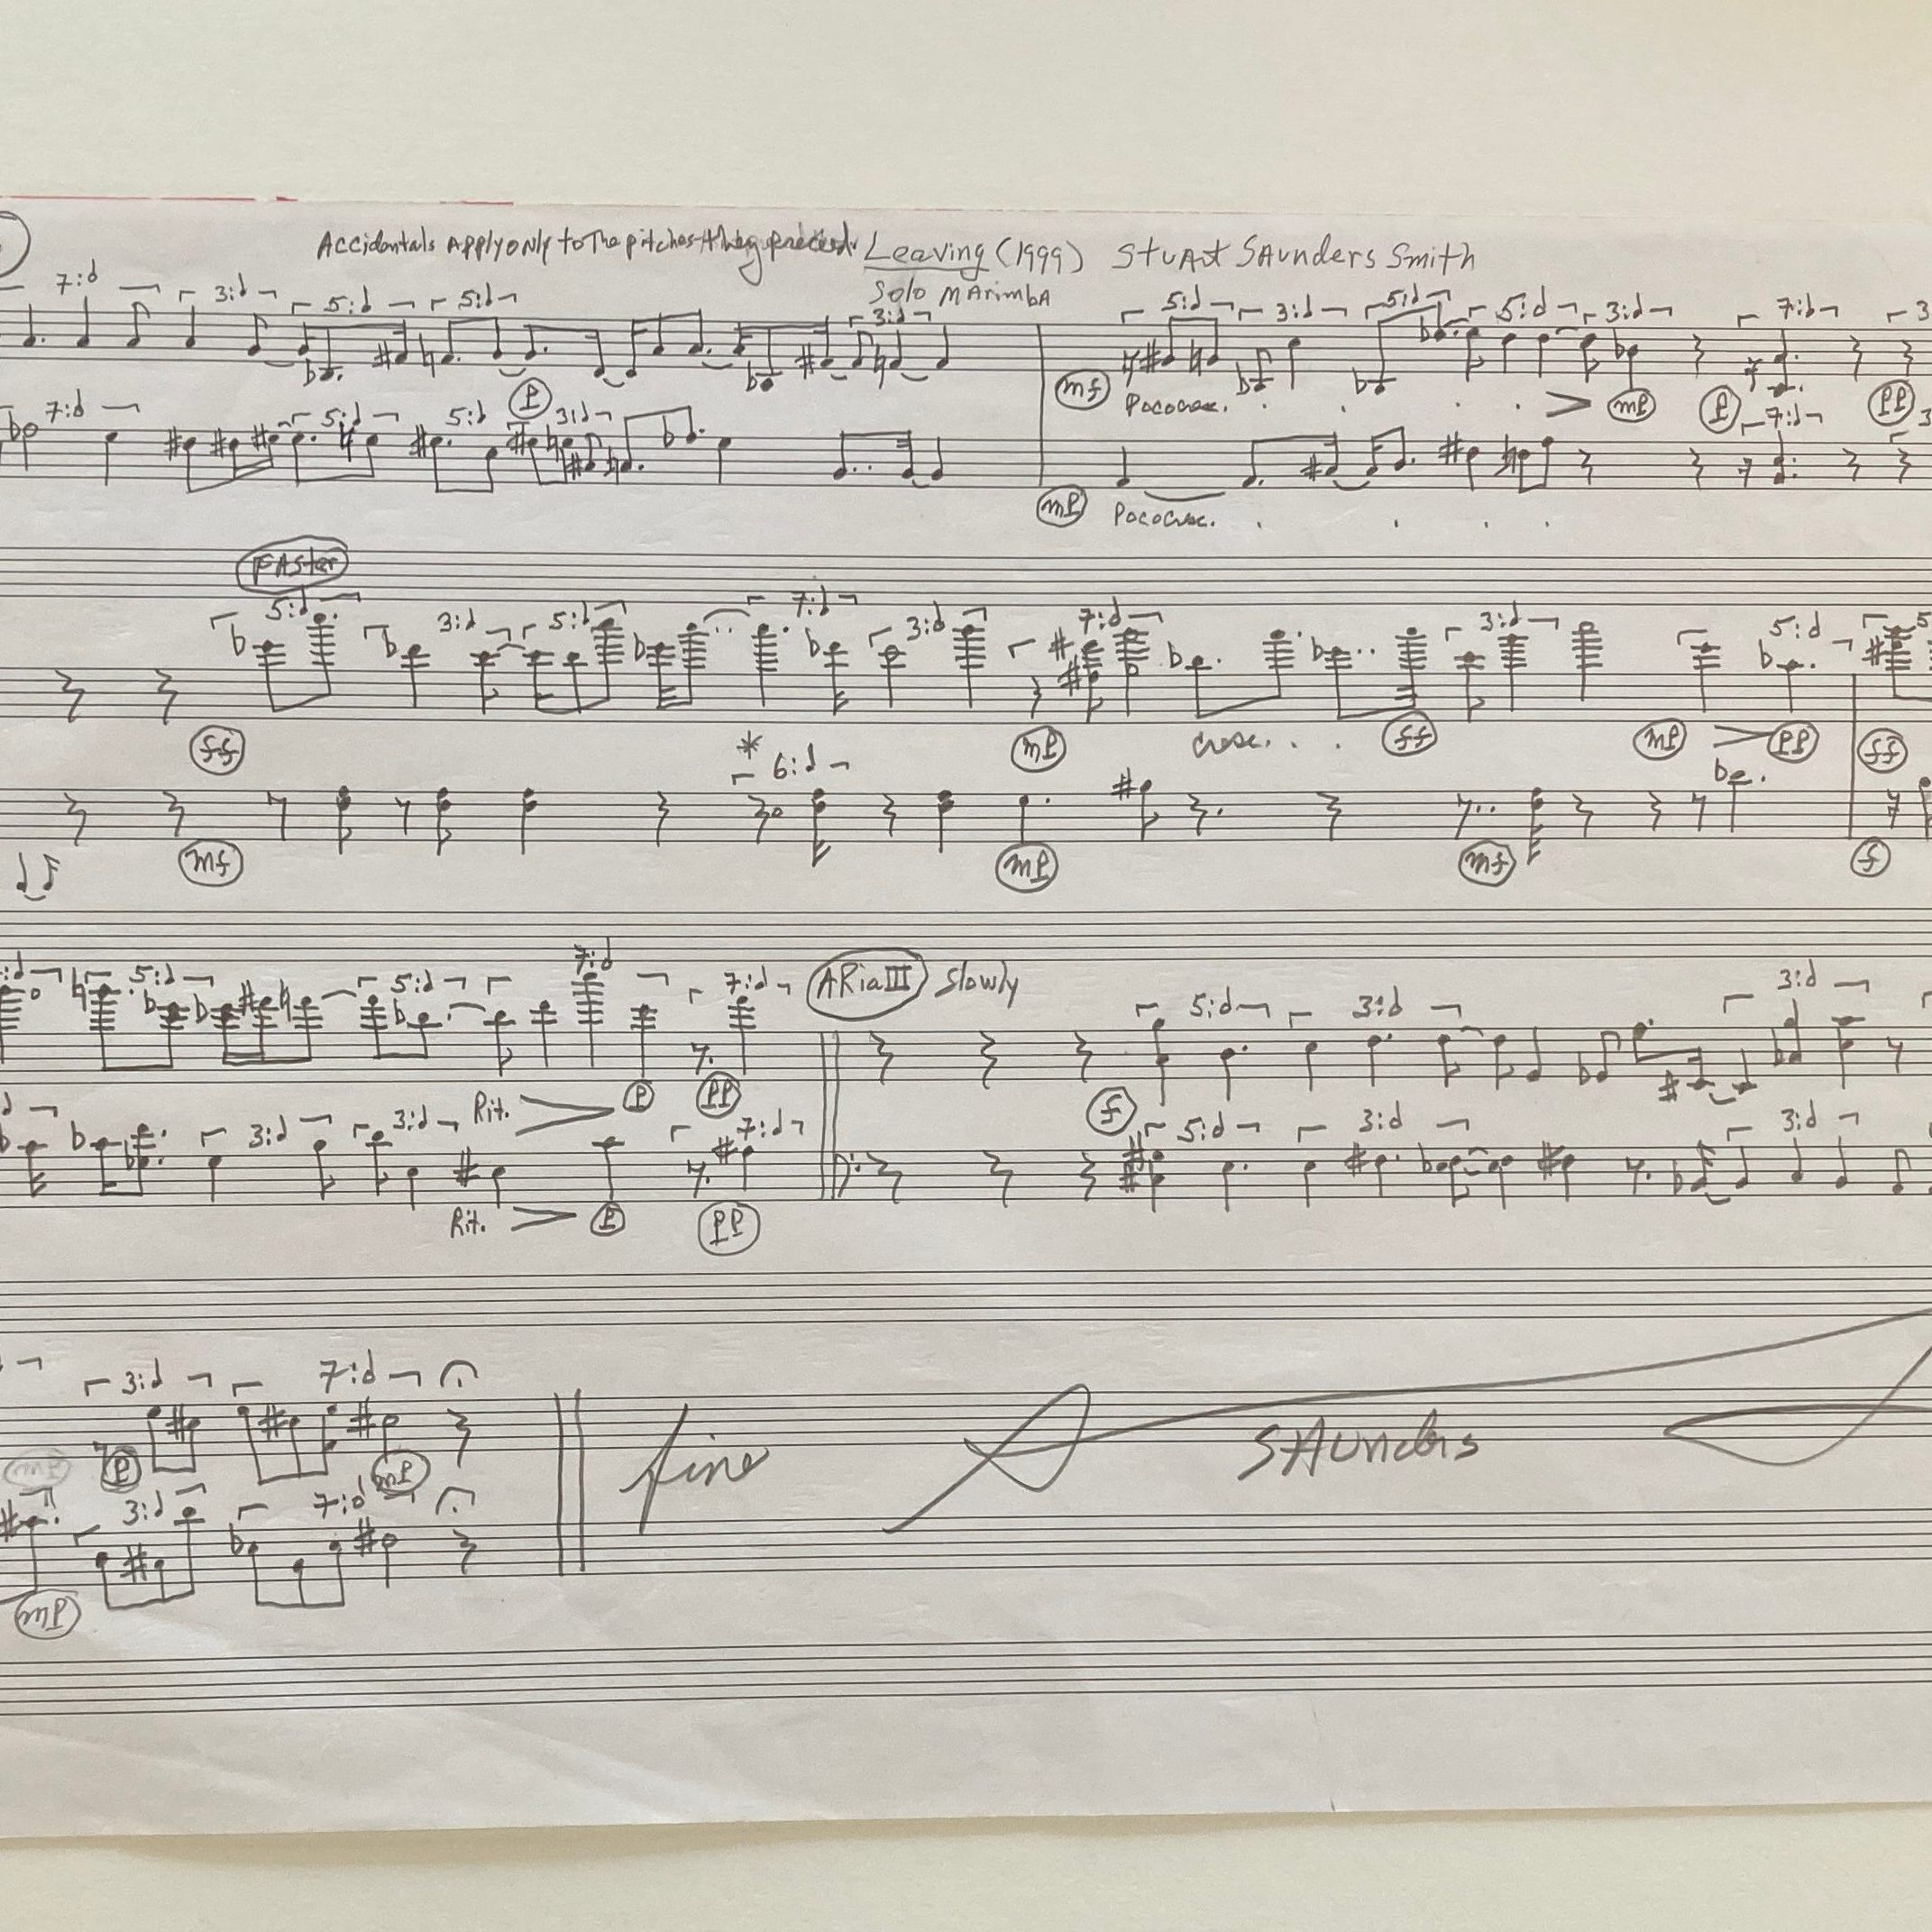 Accidentals Apply only to The pitches they precede. Leaving (1999) Stuart Saunders Smith
Solo Marimba
7:d 3:d 5:d 5:d 3:d 5:d 3:d 5:d 5:d 3:d 7:d 3
mf Poco cresc. . . . . > mp p pp
7:d 5:d 5:d p 3:d 7:d 3
mp Poco cresc. . . . .
Faster
5:d 3:d 5:d 7:d 3:d 7:d 3:d 5:d 5
ff mp cresc. . . ff mp > pp ff
* 6:d
mf mp mf f
:d 5:d 5:d 7:d 7:d Aria III Slowly 5:d 3:d 3:d
Rit. > p pp f
d 3:d 3:d 7:d 5:d 3:d 3:d
Rit. > p pp
3:d 7:d
mp p mp fine Saunders
3:d 7:d
mp